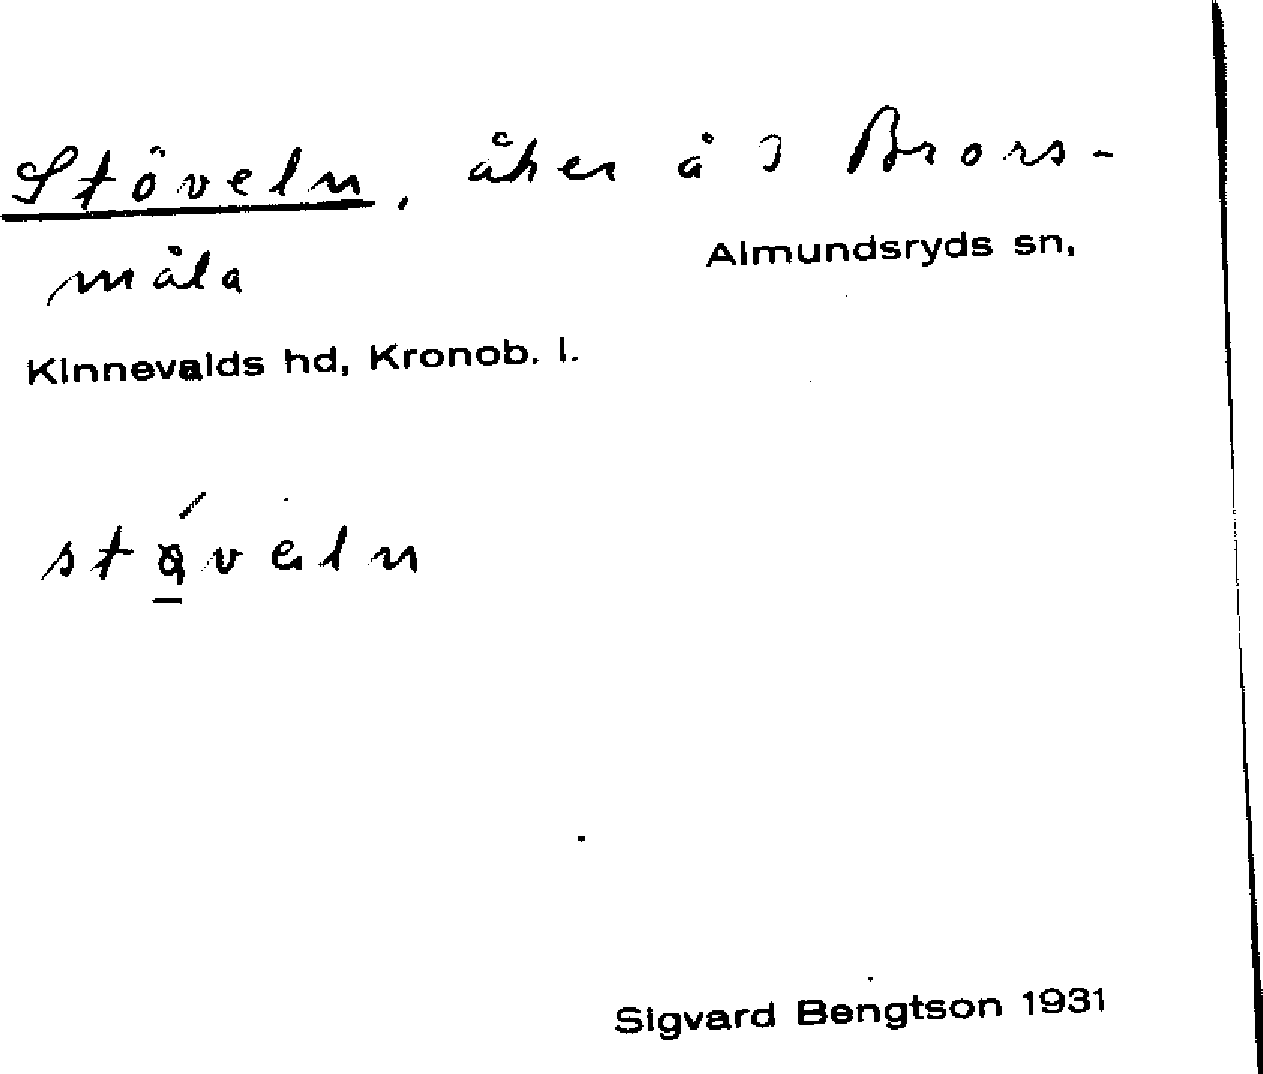 Stöveln, åker å 3 Brors-
måla
Almundsryds sn,
Kinnevalds hd, Kronob. l.
Sigvard Bengtson 1931